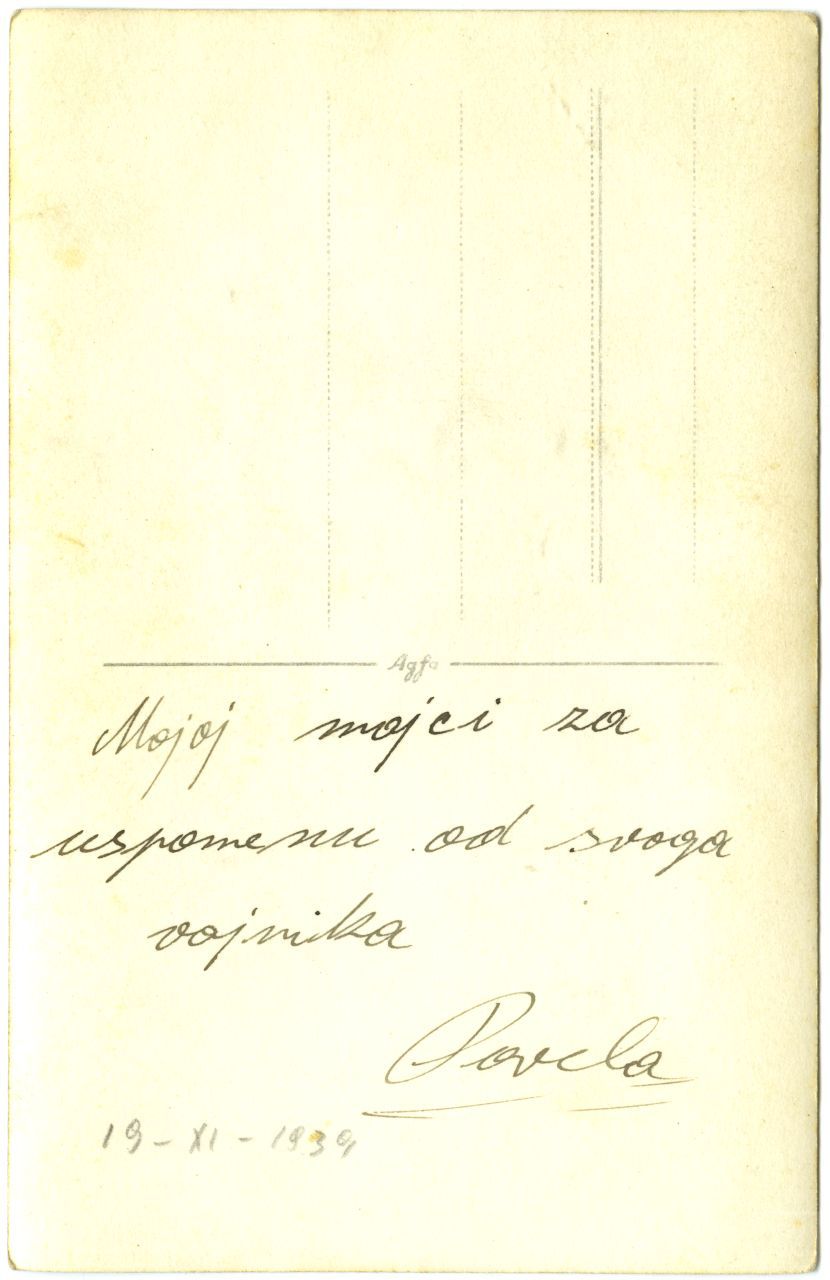 Agfa
Mojoj majci za
uspomenu od svoga
vojnika
Pavela
19-XI-1939